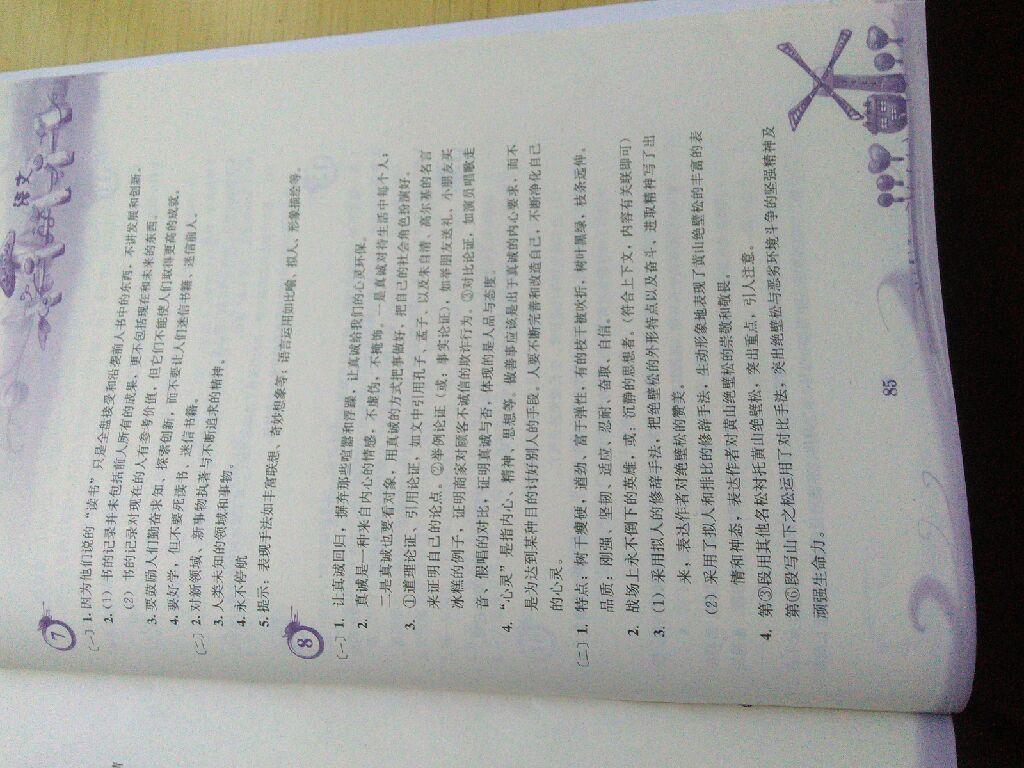 语文
7
〔一〕1. 因为他们说的“读书”只是全盘接受和沿袭前人书中的东西，不讲发展和创新。
2. (1) 书的记录并未包括前人所有的成果，更不包括现在和未来的东西。
(2) 书的记录对现在的人有参考价值，但它们不能使人们取得更高的成就。
3. 要鼓励人们勤奋求知、探索创新，而不要让人们迷信书籍、迷信前人。
4. 要好学，但不要死读书、迷信书籍。
〔二〕2. 对新领域、新事物执著与不断追求的精神。
3. 人类未知的领域和事物。
4. 永不停航
5. 提示：表现手法如丰富联想、奇妙想象等；语言运用如比喻、拟人、形象描绘等。
8
〔一〕1. 让真诚回归，摒弃那些喧嚣和浮躁，让真诚给我们的心灵环保。
2. 真诚是一种来自内心的情感，不虚伪，不掩饰。一是真诚对待生活中每个人；
二是真诚也要看对象，用真诚的方式把事做好，把自己的社会角色扮演好。
3. ①道理论证、引用论证，如文中引用孔子、孟子、以及朱自清、高尔基的名言
来证明自己的论点。②举例论证（或：事实论证），如举朋友送礼、小朋友买
冰糕的例子，证明商家对顾客不诚信的欺诈行为。③对比论证，如演员唱歌走
音、假唱的对比，证明真诚与否，体现的是人品与态度。
4. “心灵”是指内心、精神、思想等。做善事应该是出于真诚的内心要求，而不
是为达到某种目的讨好别人的手段。人要不断完善和改造自己，不断净化自己
的心灵。
〔二〕1. 特点：树干瘦硬，遒劲、富于弹性，有的枝干被吹折，树叶黑绿，枝条远伸。
品质：刚强、坚韧、适应、忍耐、奋取、自信。
2. 战场上永不倒下的英雄，或：沉静的思想者。（符合上下文，内容有关联即可）
3. (1) 采用拟人的修辞手法，把绝壁松的外形特点以及奋斗、进取精神写了出
来，表达作者对绝壁松的赞美。
(2) 采用了拟人和排比的修辞手法，生动形象地表现了黄山绝壁松的丰富的表
情和神态，表达作者对黄山绝壁松的崇敬和敬畏。
4. 第③段用其他名松衬托黄山绝壁松，突出重点，引人注意。
第⑥段与山下之松运用了对比手法，突出绝壁松与恶劣环境斗争的坚强精神及
顽强生命力。
85